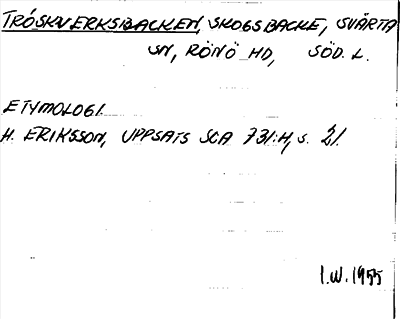 TRÖSKVERKSBACKEN, SKOGSBACKE, SVÄRTA
SN, RÖNÖ HD, SÖD. L.
ETYMOLOGI.
H. ERIKSSON, UPPSATS SCA 731:H, S. 21.
I.W. 1955